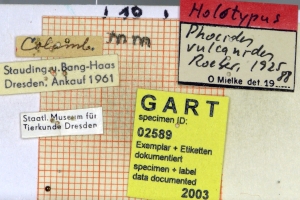 10
mm
Staudinger u. Bang-Haas
Dresden, Ankauf 1961
Staatl. Museum für
Tierkunde Dresden
GART
specimen ID:
02589
Exemplar + Etiketten
dokumentiert
specimen + label
data documented
2003
Holotypus
Roeber, 1925
O Mielke det. 19
88